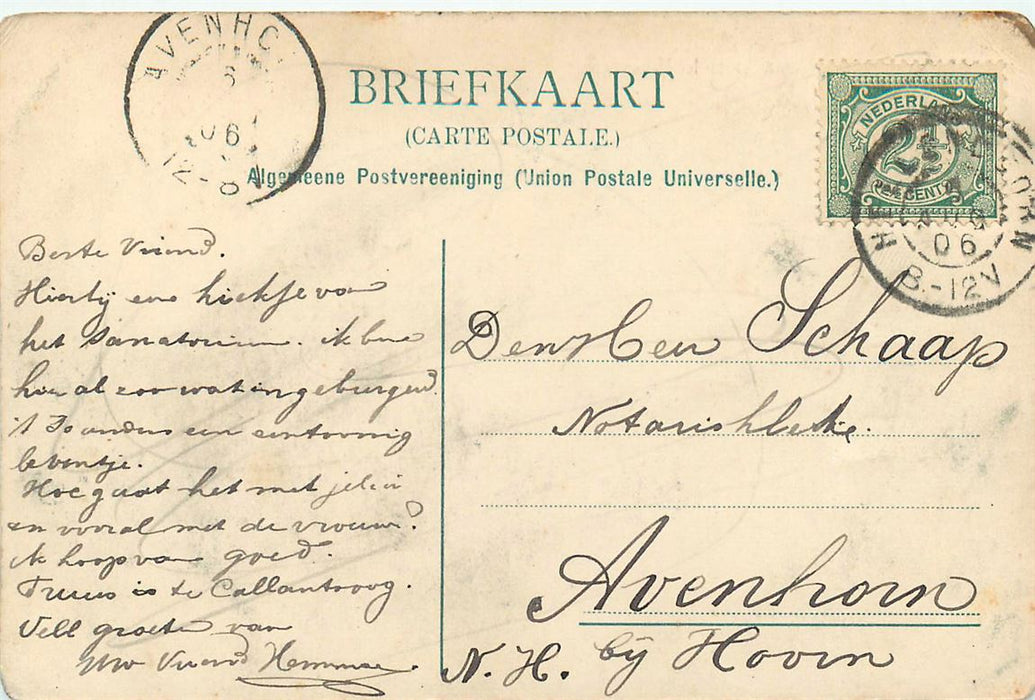 AVENHO
6
06
12-8V
BRIEFKAART
(CARTE POSTALE.)
Algemeene Postvereeniging (Union Postale Universelle.)
NEDERLAND
2½
CENT
06
8.-12V
Beste Vriend.
Hierbij een kiekje van
het Sanatorium. ik ben
hier al zoo wat ingeburgerd
't Is anders een eentoonig
leventje.
Hoe gaat het met jelui
en vooral met de vrouw?
ik hoop van goed.
Truus is te Callantsoog.
Veel groeten van
Uw Vriend
Den Heer Schaap
Notarisklerk.
Avenhorn
N. H. bij Hoorn